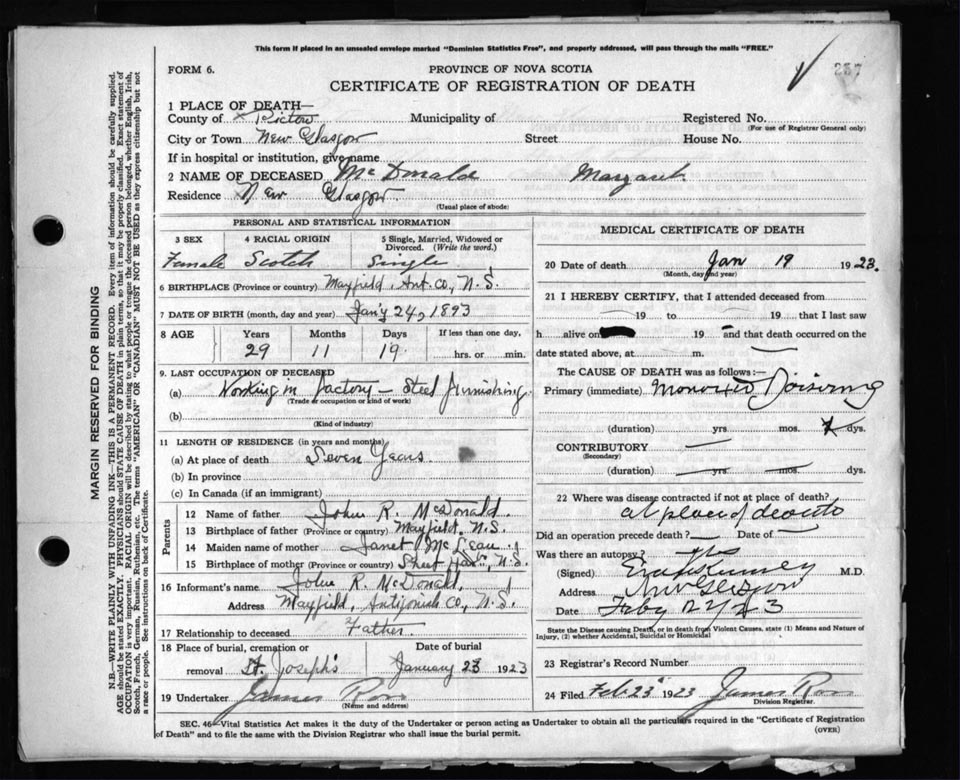 This form if placed in an unsealed envelope marked "Dominion Statistics Free", and properly addressed, will pass through the mails "FREE."
FORM 6.
PROVINCE OF NOVA SCOTIA
257
CERTIFICATE OF REGISTRATION OF DEATH
1 PLACE OF DEATH—
County of Pictou Municipality of Registered No.
(For use of Registrar General only)
City or Town New Glasgow Street House No.
If in hospital or institution, give name
2 NAME OF DECEASED McDonald Margaret
Residence New Glasgow
(Usual place of abode)
PERSONAL AND STATISTICAL INFORMATION
3 SEX 4 RACIAL ORIGIN 5 Single, Married, Widowed or Divorced. (Write the word.)
Female Scotch Single
6 BIRTHPLACE (Province or country) Mayfield, Ant. Co, N.S.
7 DATE OF BIRTH (month, day and year) Jan'y 24, 1893
8 AGE Years Months Days If less than one day,
29 11 19 hrs. or min.
9. LAST OCCUPATION OF DECEASED
(a) Working in factory — Steel furnishing
(Trade or occupation or kind of work)
(b)
(Kind of industry)
11 LENGTH OF RESIDENCE (in years and months)
(a) At place of death Seven Years.
(b) In province
(c) In Canada (if an immigrant)
Parents
12 Name of father John R. McDonald.
13 Birthplace of father (Province or country) Mayfield, N.S.
14 Maiden name of mother Janet McLean
15 Birthplace of mother (Province or country) Sheet Har., N.S.
16 Informant's name John R. McDonald,
Address Mayfield, Antigonish Co, N.S.
17 Relationship to deceased Father.
18 Place of burial, cremation or removal Date of burial
St. Joseph's January 23 1923
19 Undertaker James Ross
(Name and address)
MEDICAL CERTIFICATE OF DEATH
20 Date of death Jan 19 1923.
(Month, day and year)
21 I HEREBY CERTIFY, that I attended deceased from
19 to 19 that I last saw
h alive on 19 and that death occurred on the
date stated above, at m.
The CAUSE OF DEATH was as follows:—
Primary (immediate) Monoxide Poisoning
(duration) yrs mos. dys.
CONTRIBUTORY
(Secondary)
(duration) yrs mos. dys.
22 Where was disease contracted if not at place of death?
at place of death
Did an operation precede death? Date of
Was there an autopsy?
(Signed) M.D.
Address New Glasgow
Date Feby 22/23
State the Disease causing Death, or in death from Violent Causes, state (1) Means and Nature of Injury, (2) whether Accidental, Suicidal or Homicidal
23 Registrar's Record Number
24 Filed Feb 23d 1923 James Ross
Division Registrar.
SEC. 46—Vital Statistics Act makes it the duty of the Undertaker or person acting as Undertaker to obtain all the particulars required in the "Certificate of Registration of Death" and to file the same with the Division Registrar who shall issue the burial permit.
(OVER)
MARGIN RESERVED FOR BINDING
N.B.—WRITE PLAINLY WITH UNFADING INK—THIS IS A PERMANENT RECORD. Every item of information should be carefully supplied.
AGE should be stated EXACTLY. PHYSICIANS should STATE CAUSE OF DEATH in plain terms, so that it may be properly classified. Exact statement of
OCCUPATION is very important. RACIAL ORIGIN will be described by stating to what people or tongue the deceased person belonged, whether English, Irish,
Scotch, French, German, Russian, Ruthenian, etc. The terms "AMERICAN" OR "CANADIAN" MUST NOT BE USED as they express citizenship but not
a race or people. See instructions on back of Certificate.